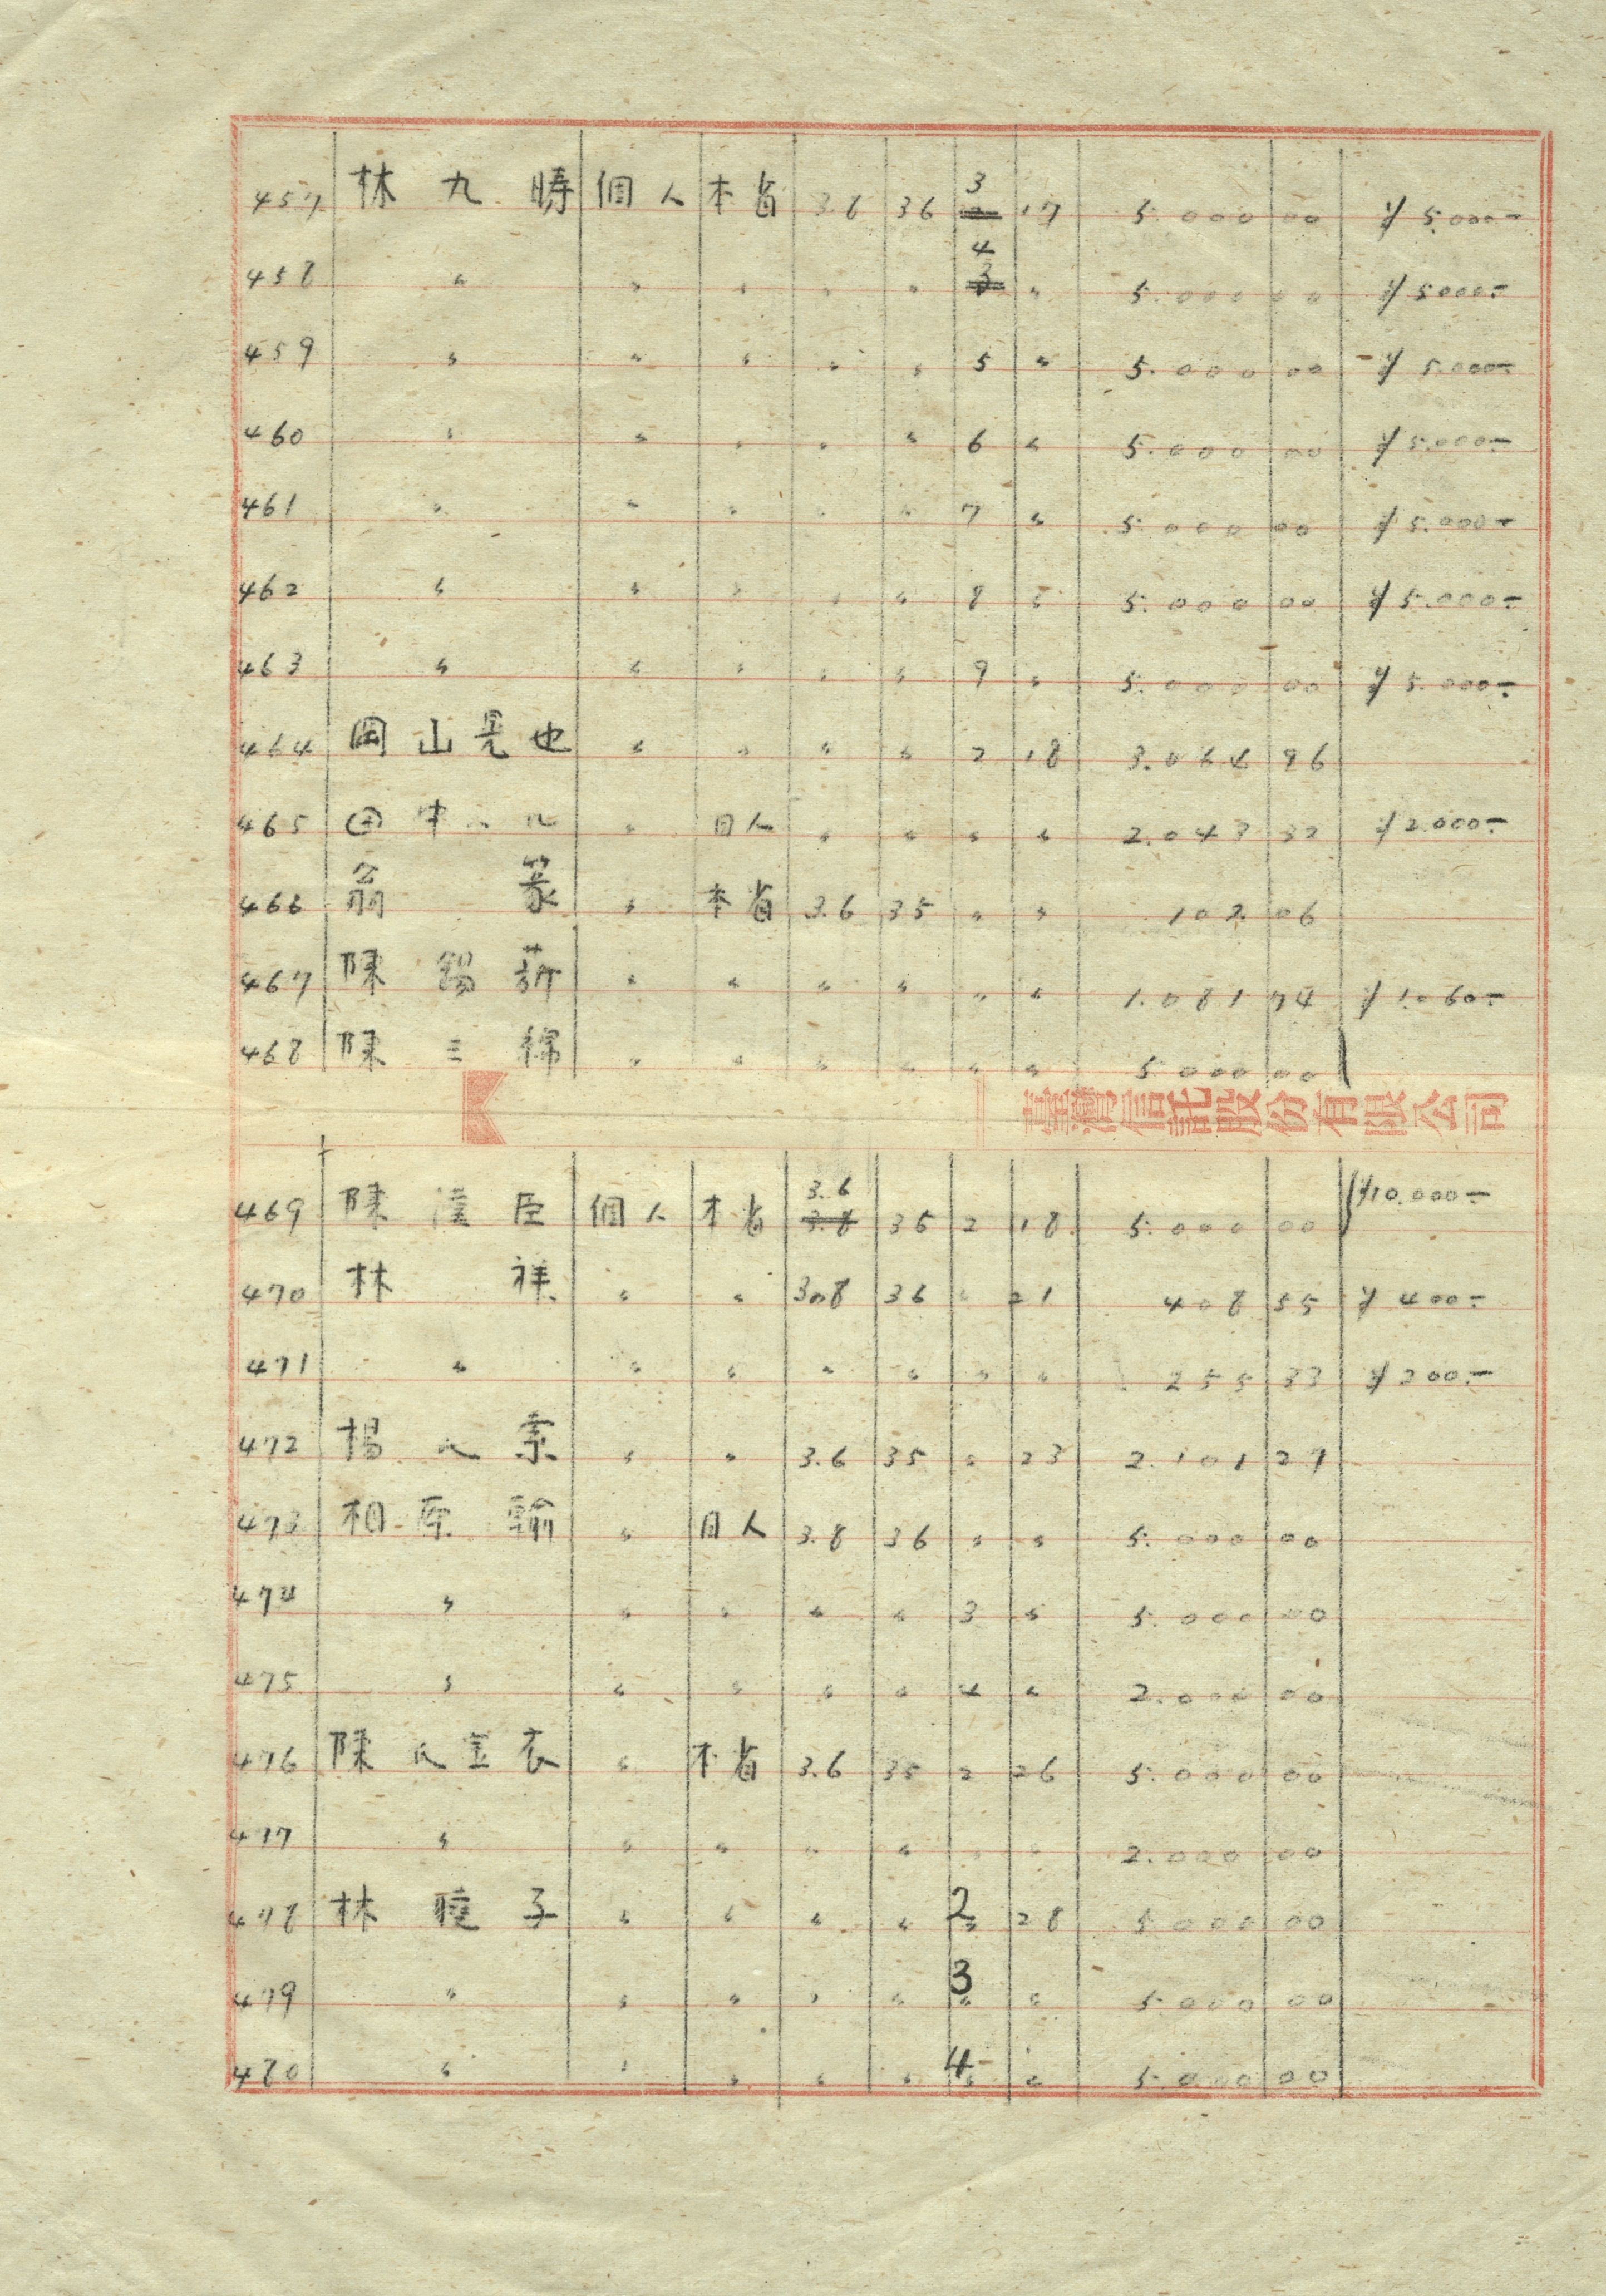 457 林九畴 個人 本省 3.6 36 3 17 5.000 00 ¥5.000-
458 〃 〃 〃 〃 〃 4 〃 5.000 00 ¥5.000-
459 〃 〃 〃 〃 〃 5 〃 5.000 00 ¥5.000-
460 〃 〃 〃 〃 〃 6 〃 5.000 00 ¥5.000-
461 〃 〃 〃 〃 〃 7 〃 5.000 00 ¥5.000-
462 〃 〃 〃 〃 〃 8 〃 5.000 00 ¥5.000-
463 〃 〃 〃 〃 〃 9 〃 5.000 00 ¥5.000-
464 岡山晃也 〃 〃 〃 〃 2 18 96
465 田中 〃 日人 〃 〃 〃 〃 2.043 32 ¥2.000-
466 翁篆 〃 本省 3.6 35 〃 〃 102 06
467 陳錫薪 〃 〃 〃 〃 〃 〃 1.081 74 ¥1.060-
468 陳三綿 〃 〃 〃 〃 〃 〃 5.000 00
臺灣信託股份有限公司
469 陳漢臣 個人 本省 3.6 35 2 18 5.000 00 ¥10.000-
470 林祥 〃 〃 3.8 36 〃 21 408 55 ¥400-
471 〃 〃 〃 〃 〃 〃 〃 255 33 ¥200-
472 楊氏素 〃 〃 3.6 35 〃 23 2.101 27
473 相原輸 〃 日人 3.8 36 〃 〃 5.000 00
474 〃 〃 〃 〃 〃 3 〃 5.000 00
475 〃 〃 〃 〃 〃 4 〃 2.000 00
476 陳氏金衣 〃 本省 3.6 35 2 26 5.000 00
477 〃 〃 〃 〃 〃 〃 〃 2.000 00
478 林子 〃 〃 〃 〃 2 28 5.000 00
479 〃 〃 〃 〃 〃 3 〃 5.000 00
480 〃 〃 〃 〃 〃 4 〃 5.000 00